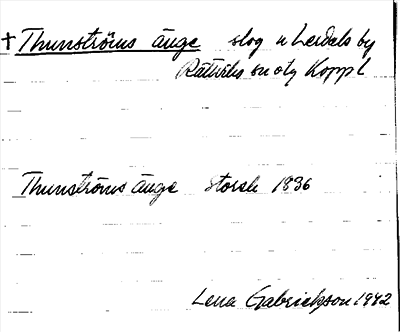 † Thunströms änge slog u Lerdals by
Rättviks sn o tg Koppl
Thunströms änge storsk 1836
Lena Gabrielsson 1942